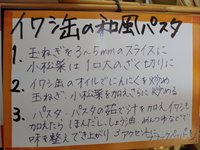 イワシ缶の和風パスタ
1. 玉ねぎを3〜5mmのスライスに
小松菜は1口大のざく切りに
2. イワシ缶のオイルでにんにくを炒め
玉ねぎ、小松菜を加えさらに炒める
3. パスタ・パスタの茹で汁を加えイワシも
加えたらほんだし、しょう油、めんつゆなどで
味を整えてでき上がり